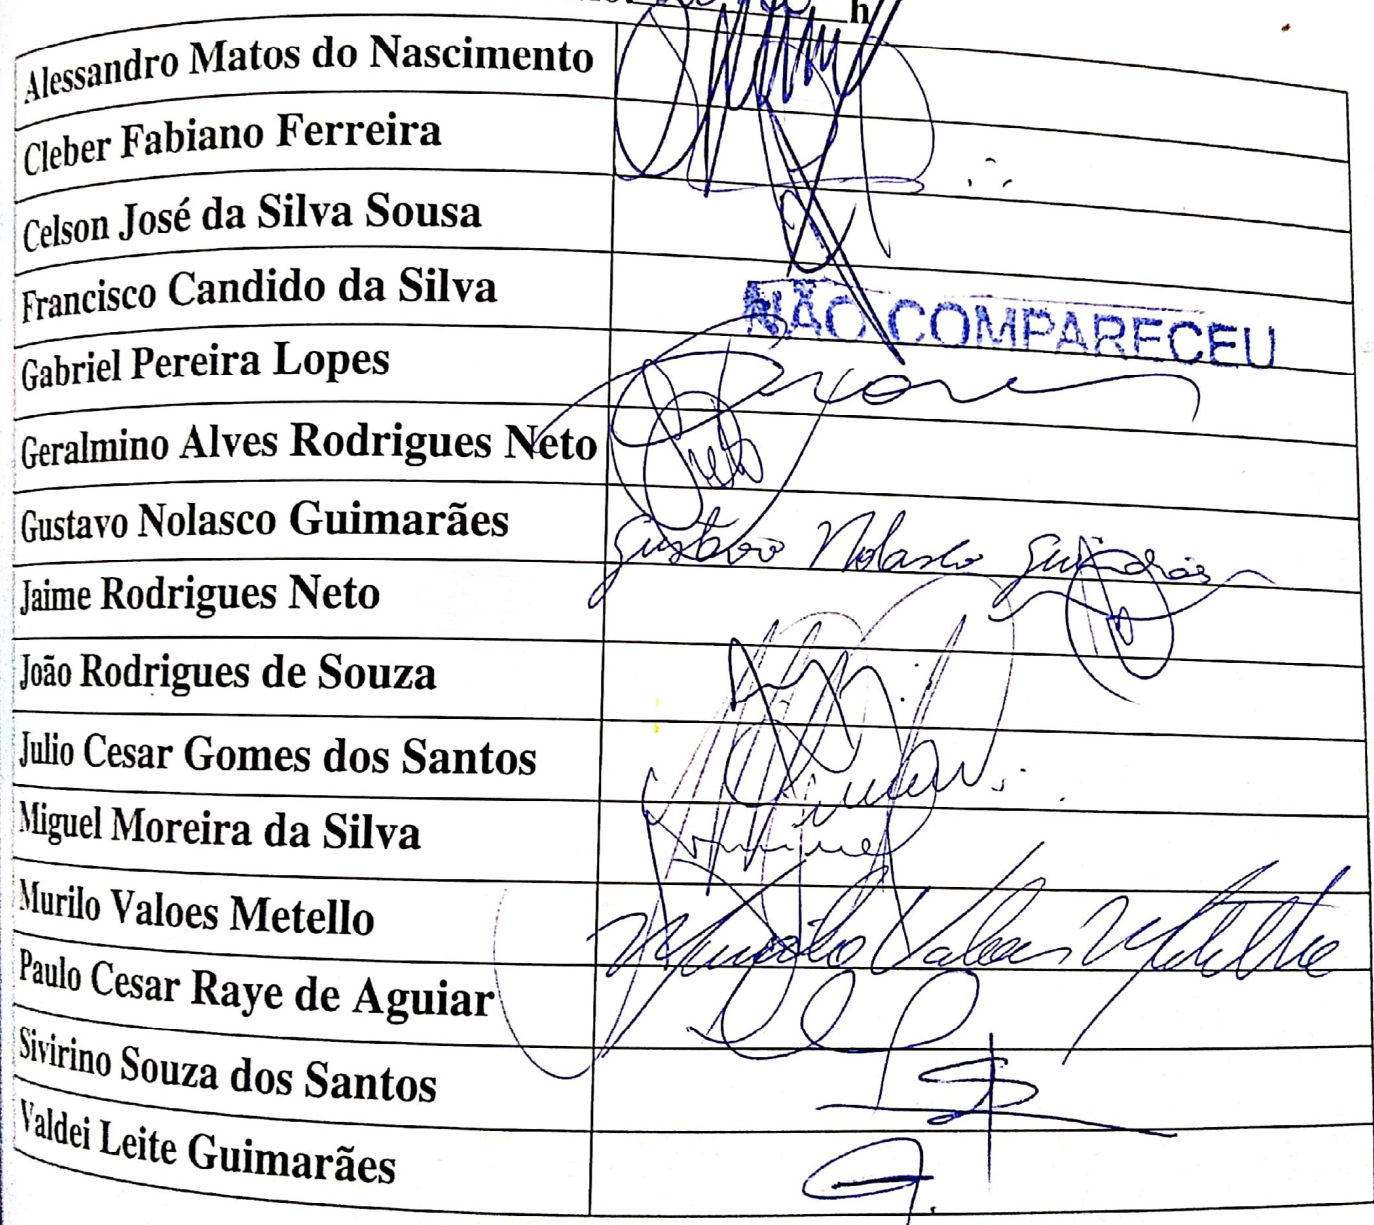 h
Alessandro Matos do Nascimento
Cleber Fabiano Ferreira
Celson José da Silva Sousa
Francisco Candido da Silva
NÃO COMPARECEU
Gabriel Pereira Lopes
Geralmino Alves Rodrigues Neto
Neto
Gustavo Nolasco Guimarães
Gustavo Nolasco Guimarães
Jaime Rodrigues Neto
João Rodrigues de Souza
Julio Cesar Gomes dos Santos
Miguel Moreira da Silva
Murilo Valoes Metello
Murilo Valoes Metello
Paulo Cesar Raye de Aguiar
Sivirino Souza dos Santos
Valdei Leite Guimarães